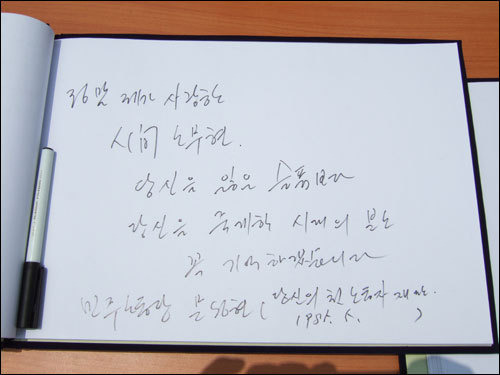 정말 제가 사랑하는
人間 노무현.
당신을 잃은 슬픔보다
당신을 죽게한 시대의 분노
꼭 기억하겠습니다
민주노동당 문성현 (당신의 첫 노동자 재판.
1985. )